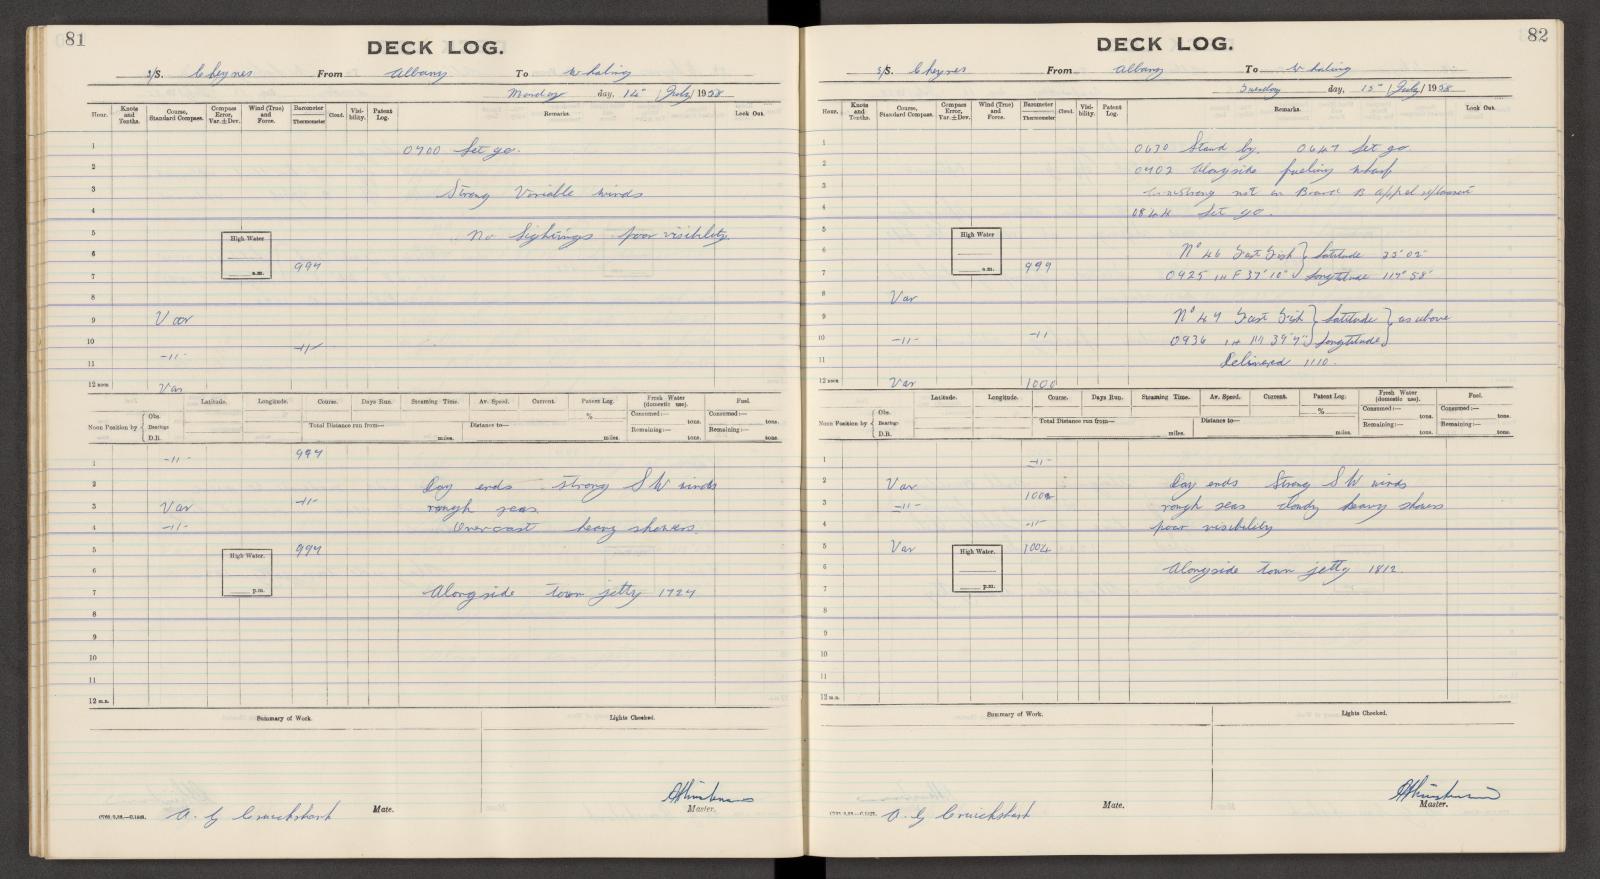 81
DECK LOG.
S/S. Cheynes From Albany To Whaling
Monday day, 14" / July / 1958
Hour. Knots and Tenths. Course, Standard Compass. Compass Error, Var. ± Dev. Wind (True) and Force. Barometer Thermometer Cloud. Visibility. Patent Log. Remarks. Look Out.
1 0700 Let go.
2
3 Strong Variable winds
4
5 No Sightings poor visibility.
High Water
6 997
a.m.
7
8
9 Var
10 -11- -11-
11
12 noon Var
Latitude. Longitude. Course. Days Run. Steaming Time. Av. Speed. Current. Patent Log. Fresh Water (domestic use). Fuel.
Noon Position by Obs. Bearings D.R. Total Distance run from— miles. Distance to— miles. % Consumed:— tons. Remaining:— tons. Consumed:— tons. Remaining:— tons.
1 -11- 997
2 Day ends strong SW winds
3 Var -11- rough seas
4 -11- Overcast heavy showers.
5 997
High Water.
6
p.m.
7 Alongside town jetty 1727
8
9
10
11
12 m.n.
Summary of Work. Lights Checked.
A. G Cruickshank Mate. Master.
82
DECK LOG.
S/S. Cheynes From Albany To Whaling
Tuesday day, 15" / July / 1958
Hour. Knots and Tenths. Course, Standard Compass. Compass Error, Var. ± Dev. Wind (True) and Force. Barometer Thermometer Cloud. Visibility. Patent Log. Remarks. Look Out.
1 0630 Stand by. 0647 Let go
2 0702 Alongside fueling wharf
3 not on Board
4 0844 Let go.
5
High Water
6 No 46 Fast Fish } Latitude 35° 02"
a.m.
7 999 0925 1H F 37' 10" } Longtitude 117° 58'
8 Var
9 No 47 Fast Fish } Latitude } as above
10 -11- -11- 0936 1H M 39' 7" } Longtitude }
11 Delivered 1110.
12 noon Var 1000
Latitude. Longitude. Course. Days Run. Steaming Time. Av. Speed. Current. Patent Log. Fresh Water (domestic use). Fuel.
Noon Position by Obs. Bearings D.R. Total Distance run from— miles. Distance to— miles. % Consumed:— tons. Remaining:— tons. Consumed:— tons. Remaining:— tons.
1 -11-
2 Var Day ends Strong SW winds
3 -11- 1002 rough seas cloudy heavy showers
4 -11- poor visibility
5 Var 1004
High Water.
6 Alongside town jetty 1812.
p.m.
7
8
9
10
11
12 m.n.
Summary of Work. Lights Checked.
A. G Cruickshank Mate. Master.